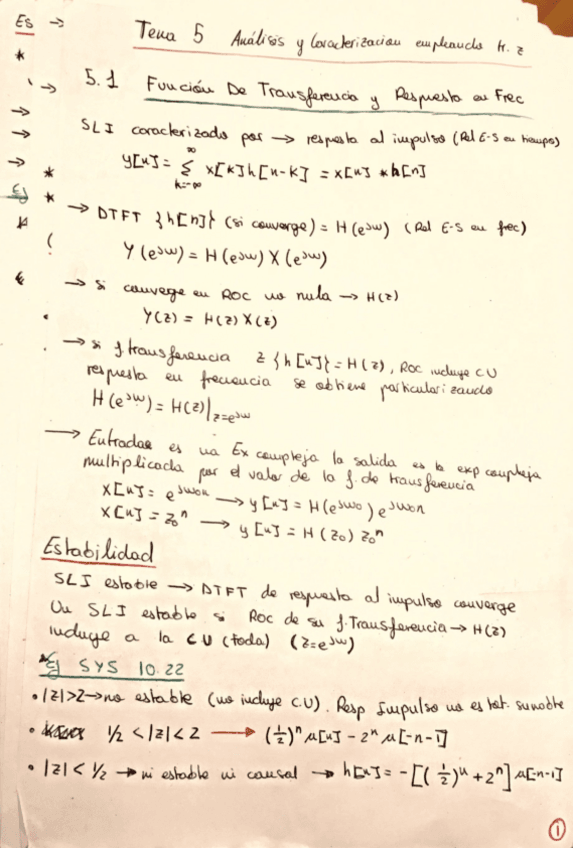 Es →
Tema 5 Análisis y Caracterizacion empleando tr. z
5.1 Función De Transferencia y Respuesta en Frec
SLI caracterizado por → respuesta al impulso (Rel E-S en tiempo)
y[n] = ∞ Σ k=-∞ x[k]h[n-k] = x[n] * h[n]
Ej
→ DTFT {h[n]} (si converge) = H(e^jω) (Rel E-S en frec)
Y(e^jω) = H(e^jω) X(e^jω)
→ si converge en ROC no nula → H(z)
Y(z) = H(z) X(z)
→ si f. transferencia z {h[n]} = H(z), ROC incluye C.U
respuesta en frecuencia se obtiene particularizando
H(e^jω) = H(z)|z=e^jω
→ Entradas es una Ex compleja la salida es la exp compleja
multiplicada por el valor de la f. de transferencia
x[n] = e^jω₀n → y[n] = H(e^jω₀) e^jω₀n
x[n] = z₀^n → y[n] = H(z₀) z₀^n
Estabilidad
SLI estable → DTFT de respuesta al impulso converge
Un SLI estable si Roc de su f. Transferencia → H(z)
incluye a la CU (toda) (z=e^jω)
*Ej SYS 10.22
• |z|>2 → no estable (no incluye C.U). Resp Impulso no es tot. sumable
• 1/2 < |z| < 2 → (1/2)^n μ[n] - 2^n μ[-n-1]
• |z| < 1/2 → ni estable ni causal → h[n] = -[(1/2)^n + 2^n] μ[-n-1]
1